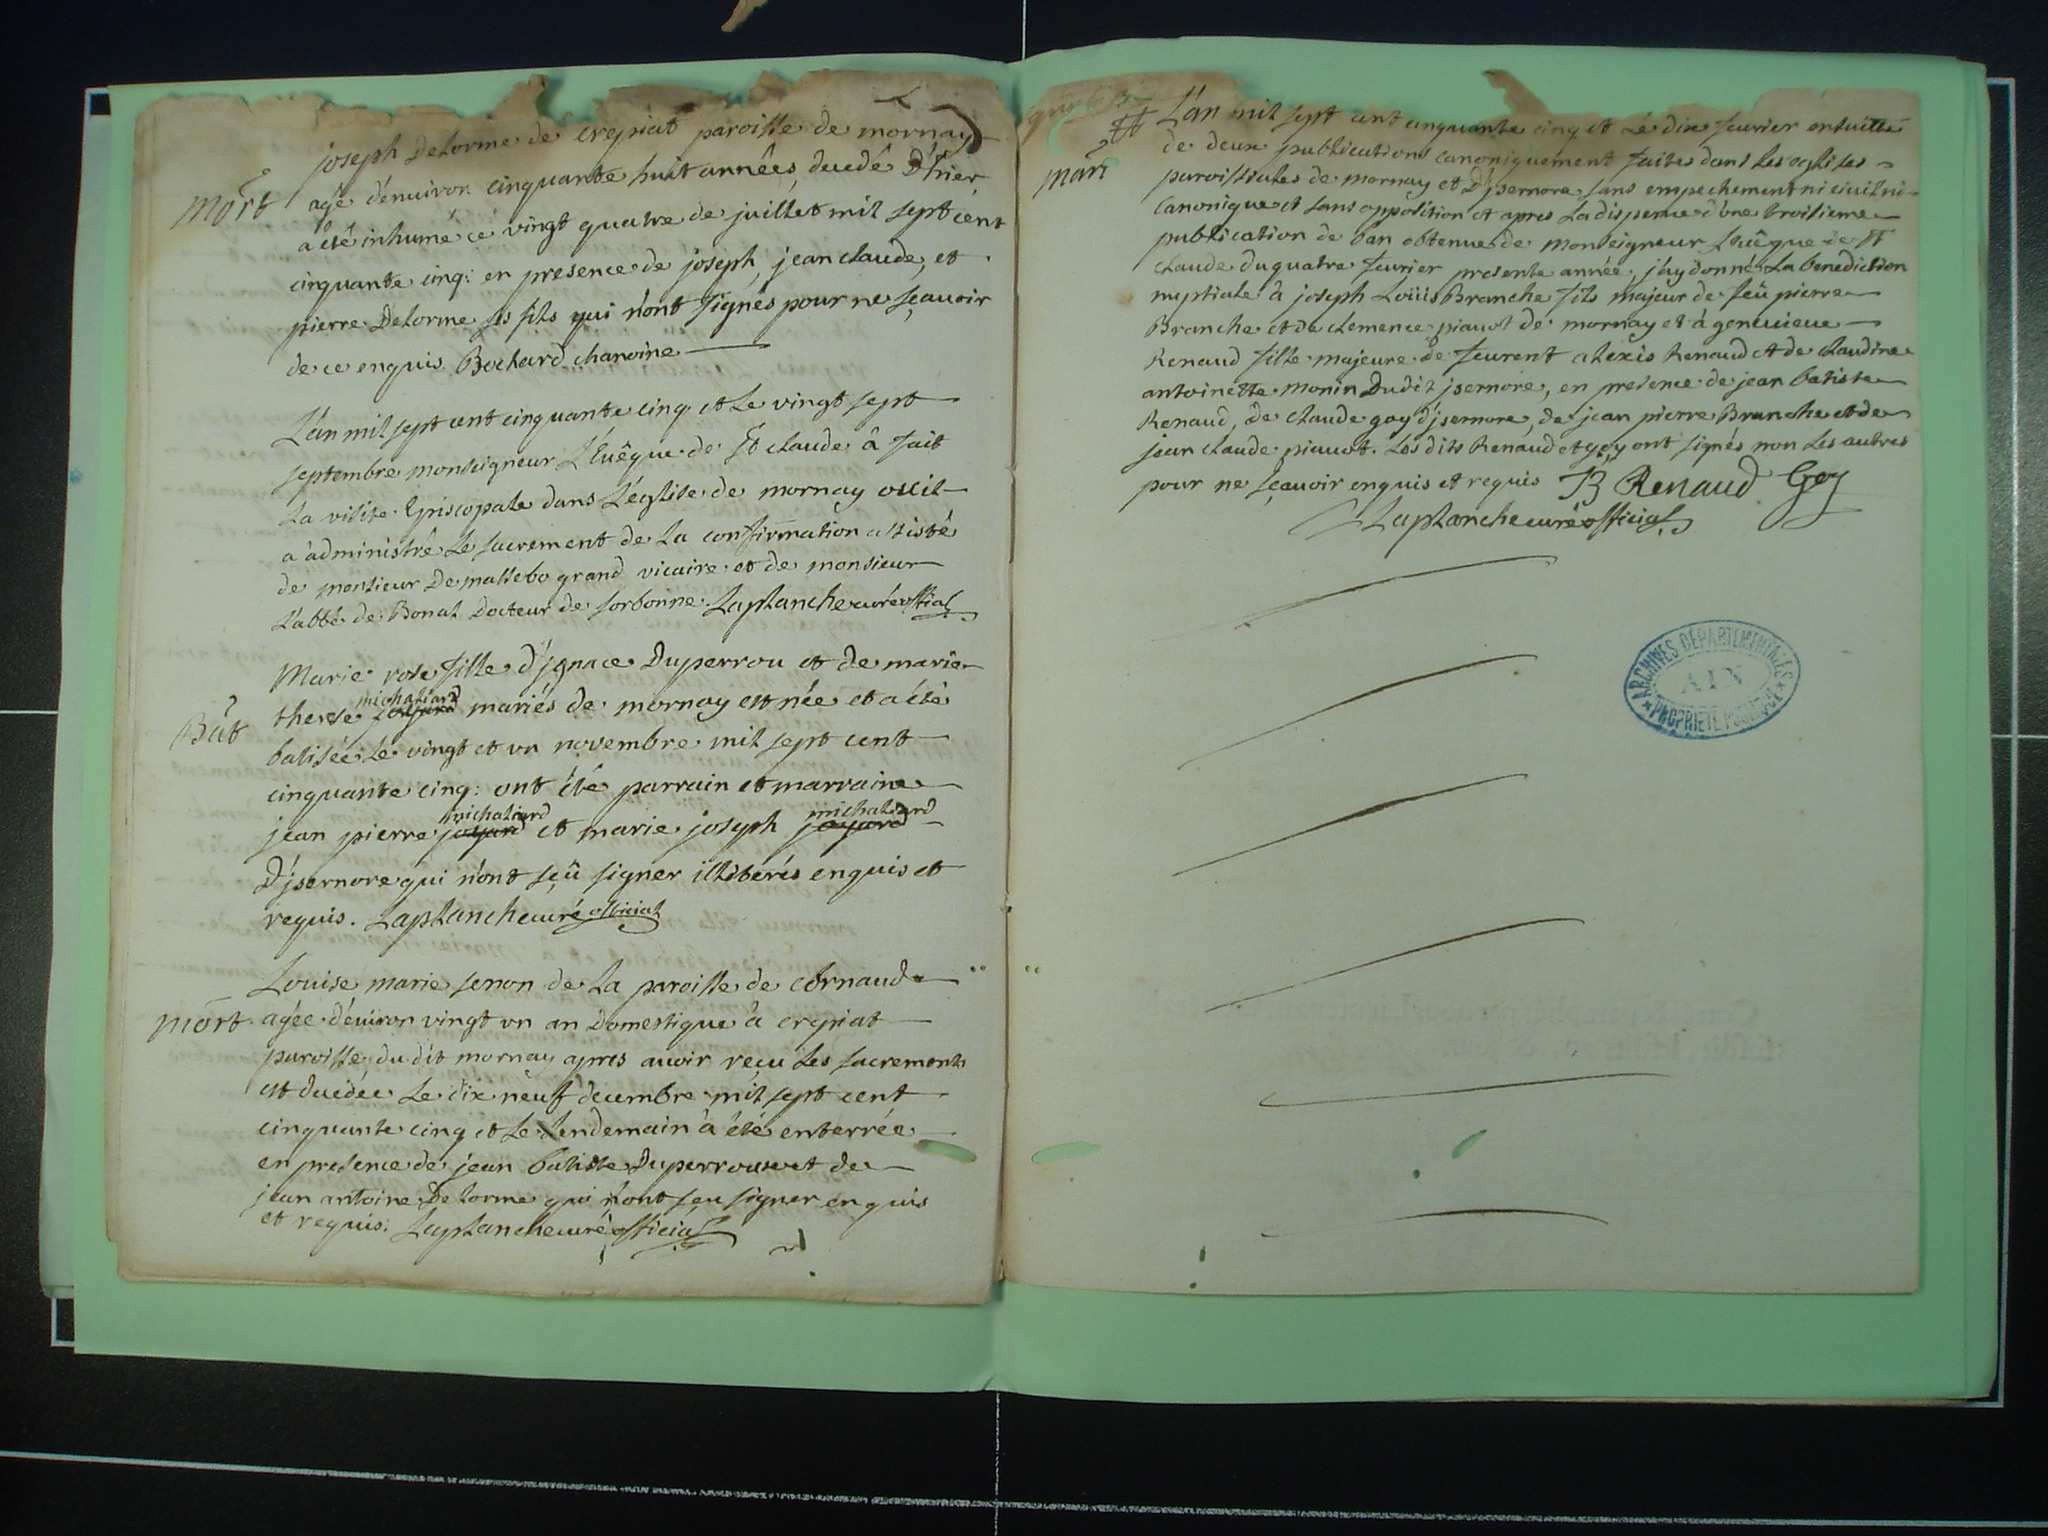 joseph Delorme de crepiat paroisse de mornay
mort
agé d'enuiron cinquante huit années, decedé d'hier,
a été inhumé ce vingt quatre de juillet mil sept cent
cinquante cinq: en presence de joseph, jean claude, et
pierre Delorme ses fils qui n'ont signés pour ne sçauoir
de ce enquis Bochard chanoine
L'an mil sept cent cinquante cinq et le vingt sept
septembre monseigneur L'Euêque de St claude â fait
La visite Episcopale dans L'église de mornay et il
a administré Le sacrement de La confirmation assisté
de monsieur De mallebo grand vicaire et de monsieur
L'abbé de Bonal Docteur de sorbonne. Laplanche curé official
Marie rose fille d'jgnace Duperrou et de marie
Bat
therese joyard michaliard mariés de mornay est née et a été
batisée Le vingt et vn novembre mil sept cent
cinquante cinq: ont été parrain et marraine
jean pierre joyard michaliard et marie joseph joyard michaliard
D'jsernore qui n'ont sçû signer illiterés enquis et
requis. Laplanche curé official
Louise marie senon de La paroisse de Cornaud
mort
agée d'euiron vingt vn an domestique â crepiat
paroisse du dit mornay apres auoir reçu Les sacrements
est decedée Le dix neuf decembre mil sept cent
cinquante cinq et Le Lendemain â été enterrée
en presence de jean batiste Duperrou et de
jean antoine Delorme qui n'ont sçu signer enquis
et requis. Laplanche curé official
L'an mil sept cent cinquante cinq et Le dix feurier ensuitte
mari
de deux publications canoniquement faites dans Les eglises
paroissiales de mornay et D'jsernore sans empechement ni ciuil ni
canonique et sans opposition et apres La dispense d'une troisieme
publication de ban obtenue de Monseigneur L'euêque de St
claude du quatre feurier presente année, j'ay donné La benediction
nuptiale â joseph Loüis Branche fils majeur de feu pierre
Branche et de clemence piauot de mornay et â geneuieue
Renaud fille majeure de Laurent alexis Renaud et de claudine
antoinette Monin Dudit jsernore, en presence de jean batiste
Renaud, de claude goy d'jsernore, de jean pierre Branche et de
jean claude piauot. Lesdits Renaud et goy ont signés non Les autres
pour ne sçauoir enquis et requis JB Renaud Goy
Laplanche curé official
ARCHIVES DÉPARTEMENTALES
AIN
PROPRIÉTÉ PUBLIQUE